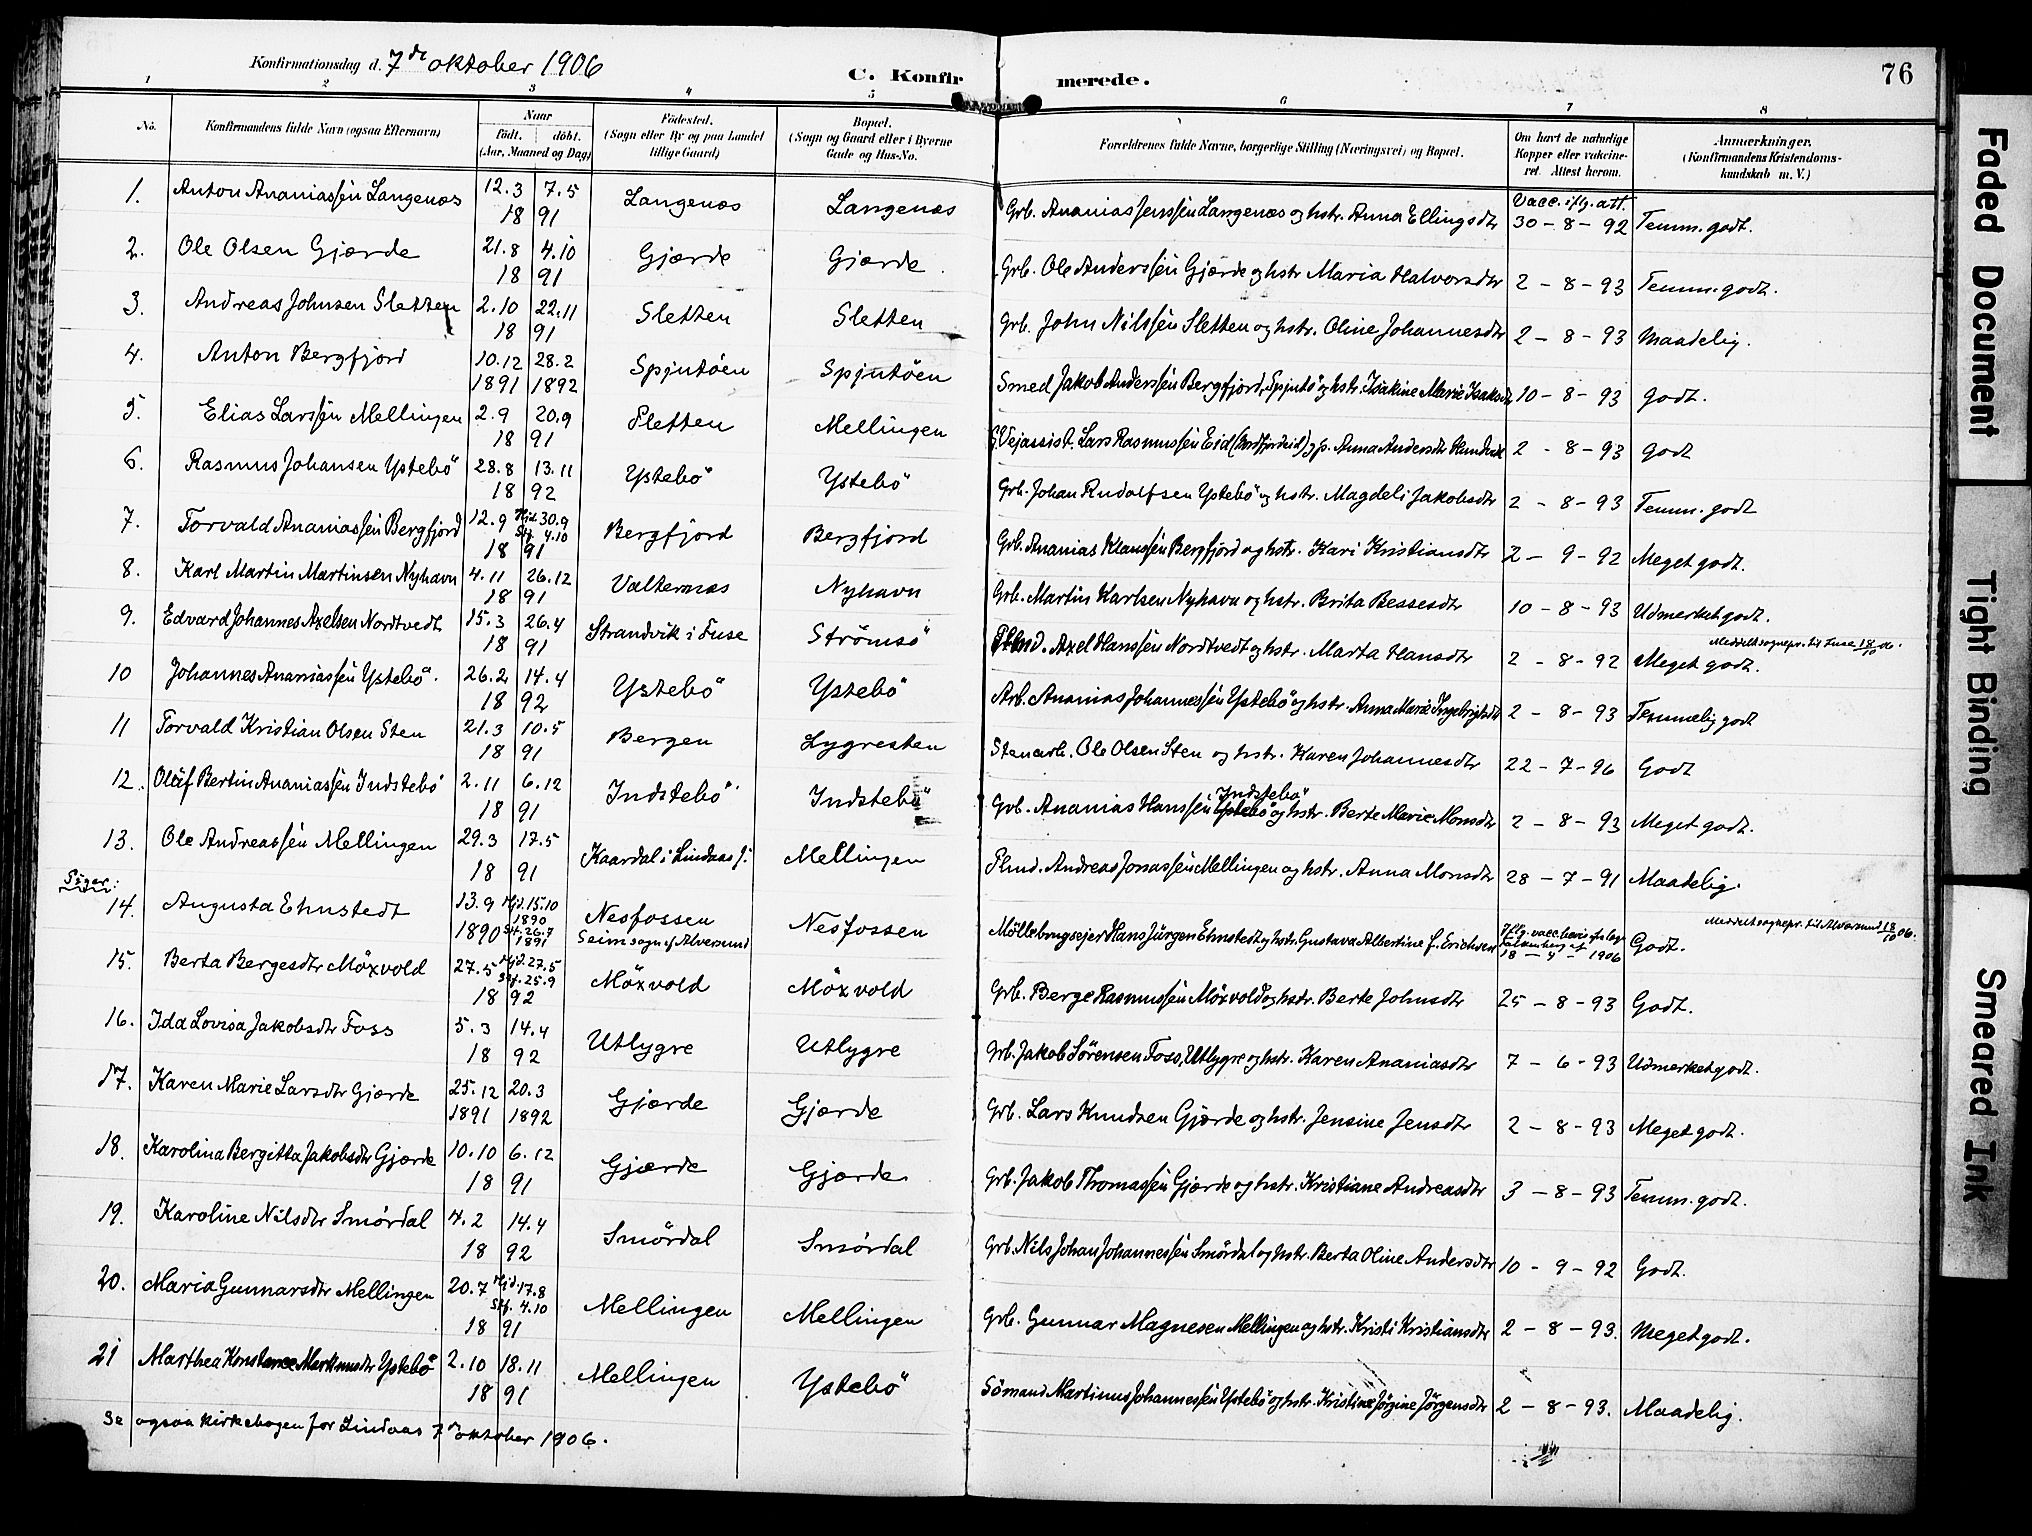 Konfirmationsdag d. 7de oktober 1906
C. Konfirmerede.
76
1 2 3 4 5 6 7 8
No. Konfirmandens fulde Navn (ogsaa Efternavn) Naar født. døbt. (Aar, Maaned og Dag) Fødested. (Sogn eller By og paa Landet tillige Gaard) Bopæl. (Sogn og Gaard eller i Byerne Gade og Hus-No. Forældrenes fulde Navne, borgerlige Stilling (Næringsvei) og Bopæl. Om havt de naturlige Kopper eller vakcineret. Attest herom. Anmærkninger. (Konfirmandens Kristendomskundskab m. V.)
1. Anton Ananiassen Langenæs 12.3 7.5 1891 Langenæs Langenæs Grb. Ananias Jenssen Langenæs og hstr. Anna Ellingsdtr Vacc. iflg. att. 30-8-92 Temm. godt.
2. Ole Olsen Gjærde 21.8 4.10 1891 Gjærde Gjærde Grb. Ole Anderssen Gjærde og hstr Maria Halvorsdtr 2-8-93 Temm. godt.
3. Andreas Johnsen Sletten 2.10 22.11 1891 Sletten Sletten Grb. John Nilssen Sletten og hstr. Oline Johannesdtr 2-8-93 Maadelig.
4. Anton Bergfjord 10.12 1891 28.2 1892 Spjutöen Spjutöen Smed Jakob Anderssen Bergfjord, Spjutö og hstr. Isakine Marie Isaksdtr 10-8-93 Godt.
5. Elias Larssen Mellingen 2.9 20.9 1891 Sletten Mellingen Vejassist. Lars Rasmussen Eid (Nordfjordeid) og p. Anna Andersdtr 2-8-93 Godt
6. Rasmus Johansen Ystebö 28.8 13.11 1892 Ystebö Ystebö Grb. Johan Rudolfsen Ystebö og hstr. Magdeli Jakobsdtr 2-8-93 Temm. godt
7. Torvald Ananiassen Bergfjord 12.9 Hjd. 30.9 Stf. 4.10 1891 Bergfjord Bergfjord Grb. Ananias Klaussen Bergfjord og hstr. Kari Kristiansdtr 2-9-92 Meget godt.
8. Karl Martin Martinsen Nyhavn 4.11 26.12 1891 Valternæs Nyhavn Grb. Martin Karlsen Nyhavn og hstr. Brita Bessesdtr 10-8-93 Udmerket godt.
9. Edvard Johannes Axelsen Nordtvedt 15.3 26.4 1891 Strandvik i Fuse Strömsö Plmd. Axel Hanssen Nordtvedt og hstr. Marta Hansdtr 2-8-92 Meget godt. Meddelt sognepr. til Fuse 18/10 06.
10 Johannes Ananiassen Ystebö. 26.2 14.4 1892 Ystebö Ystebö Arb. Ananias Johannessen Ystebö og hstr. Anna Marie Ingebrigtsdtr 2-8-93 Temmelig godt
11 Torvald Kristian Olsen Sten 21.3 10.5 1891 Bergen Lygresten Stenarb. Ole Olsen Sten og hstr. Karen Johannesdtr 22-7-96 Godt
12. Olaf Bertin Ananiassen Indstebö 2.11 6.12 1891 Indstebö Indstebö Grb. Ananias Hanssen Ystebö Indstebö og hstr. Berte Marie Monsdtr 2-8-93 Meget godt.
13. Ole Andreassen Mellingen 29.3 17.5 1891 Kaardal i Lindaas s. Mellingen Plmd. Andreas Jonassen Mellingen og hstr. Anna Monsdtr 28-7-91 Maadelig.
Piger:
14. Augusta Ehnstedt 13.9 1890 Hjd. 15.10 1890 Stf. 26.7 1891 Nesfossen Seim sogn af Alversund Nesfossen Möllebrugsejer Hans Jürgen Ehnstedt og hstr. Gustava Albertine f. Erichsen Iflg. vacc. bevis af 18-4-1906 Godt. Meddelt sognepr. til Alversund 18/10 06.
15. Berta Bergesdtr Möxvold 27.5 Hjd. 27.5 Stf. 25.9 1892 Möxvold Möxvold Grb. Berge Rasmussen Möxvold og hstr. Berte Johnsdtr 25-8-93 Godt.
16. Ida Lovisa Jakobsdtr Foss 5.3 14.4 1892 Utlygre Utlygre Grb. Jakob Sørensen Foss, Utlygre og hstr. Karen Ananiasdtr 7-6-93 Udmerket godt.
17. Karen Marie Larsdtr Gjærde 25.12 1891 20.3 1892 Gjærde Gjærde Grb. Lars Knudsen Gjærde og hstr. Jensine Jensdtr 2-8-93 Meget godt.
18. Karolina Bergitta Jakobsdtr Gjærde 10.10 6.12 1891 Gjærde Gjærde Grb. Jakob Thomassen Gjærde og hstr. Kristiane Andreasdtr 3-8-93 Temm. godt.
19. Karoline Nilsdtr Smördal 4.2 14.4 1892 Smördal Smördal Grb. Nils Johan Johannessen Smördal og hstr. Berta Oline Andersdtr 10-9-92 Godt.
20. Maria Gunnarsdtr Mellingen 20.7 Hjd. 17.8 Stf. 4.10 1891 Mellingen Mellingen Grb. Gunnar Magnesen Mellingen og hstr. Kristi Kristiansdtr 2-8-93. Meget godt.
21 Marthea Konstance Martinusdtr Ystebö 2.10 18.11 1891 Mellingen Ystebö Sömand Martinus Johannessen Ystebö og hstr. Kristine Jörgine Jörgensdtr 2-8-93. Maadelig.
Se ogsaa kirkebogen for Lindaas 7de oktober 1906.
Faded Document
Tight Binding
Smeared Ink